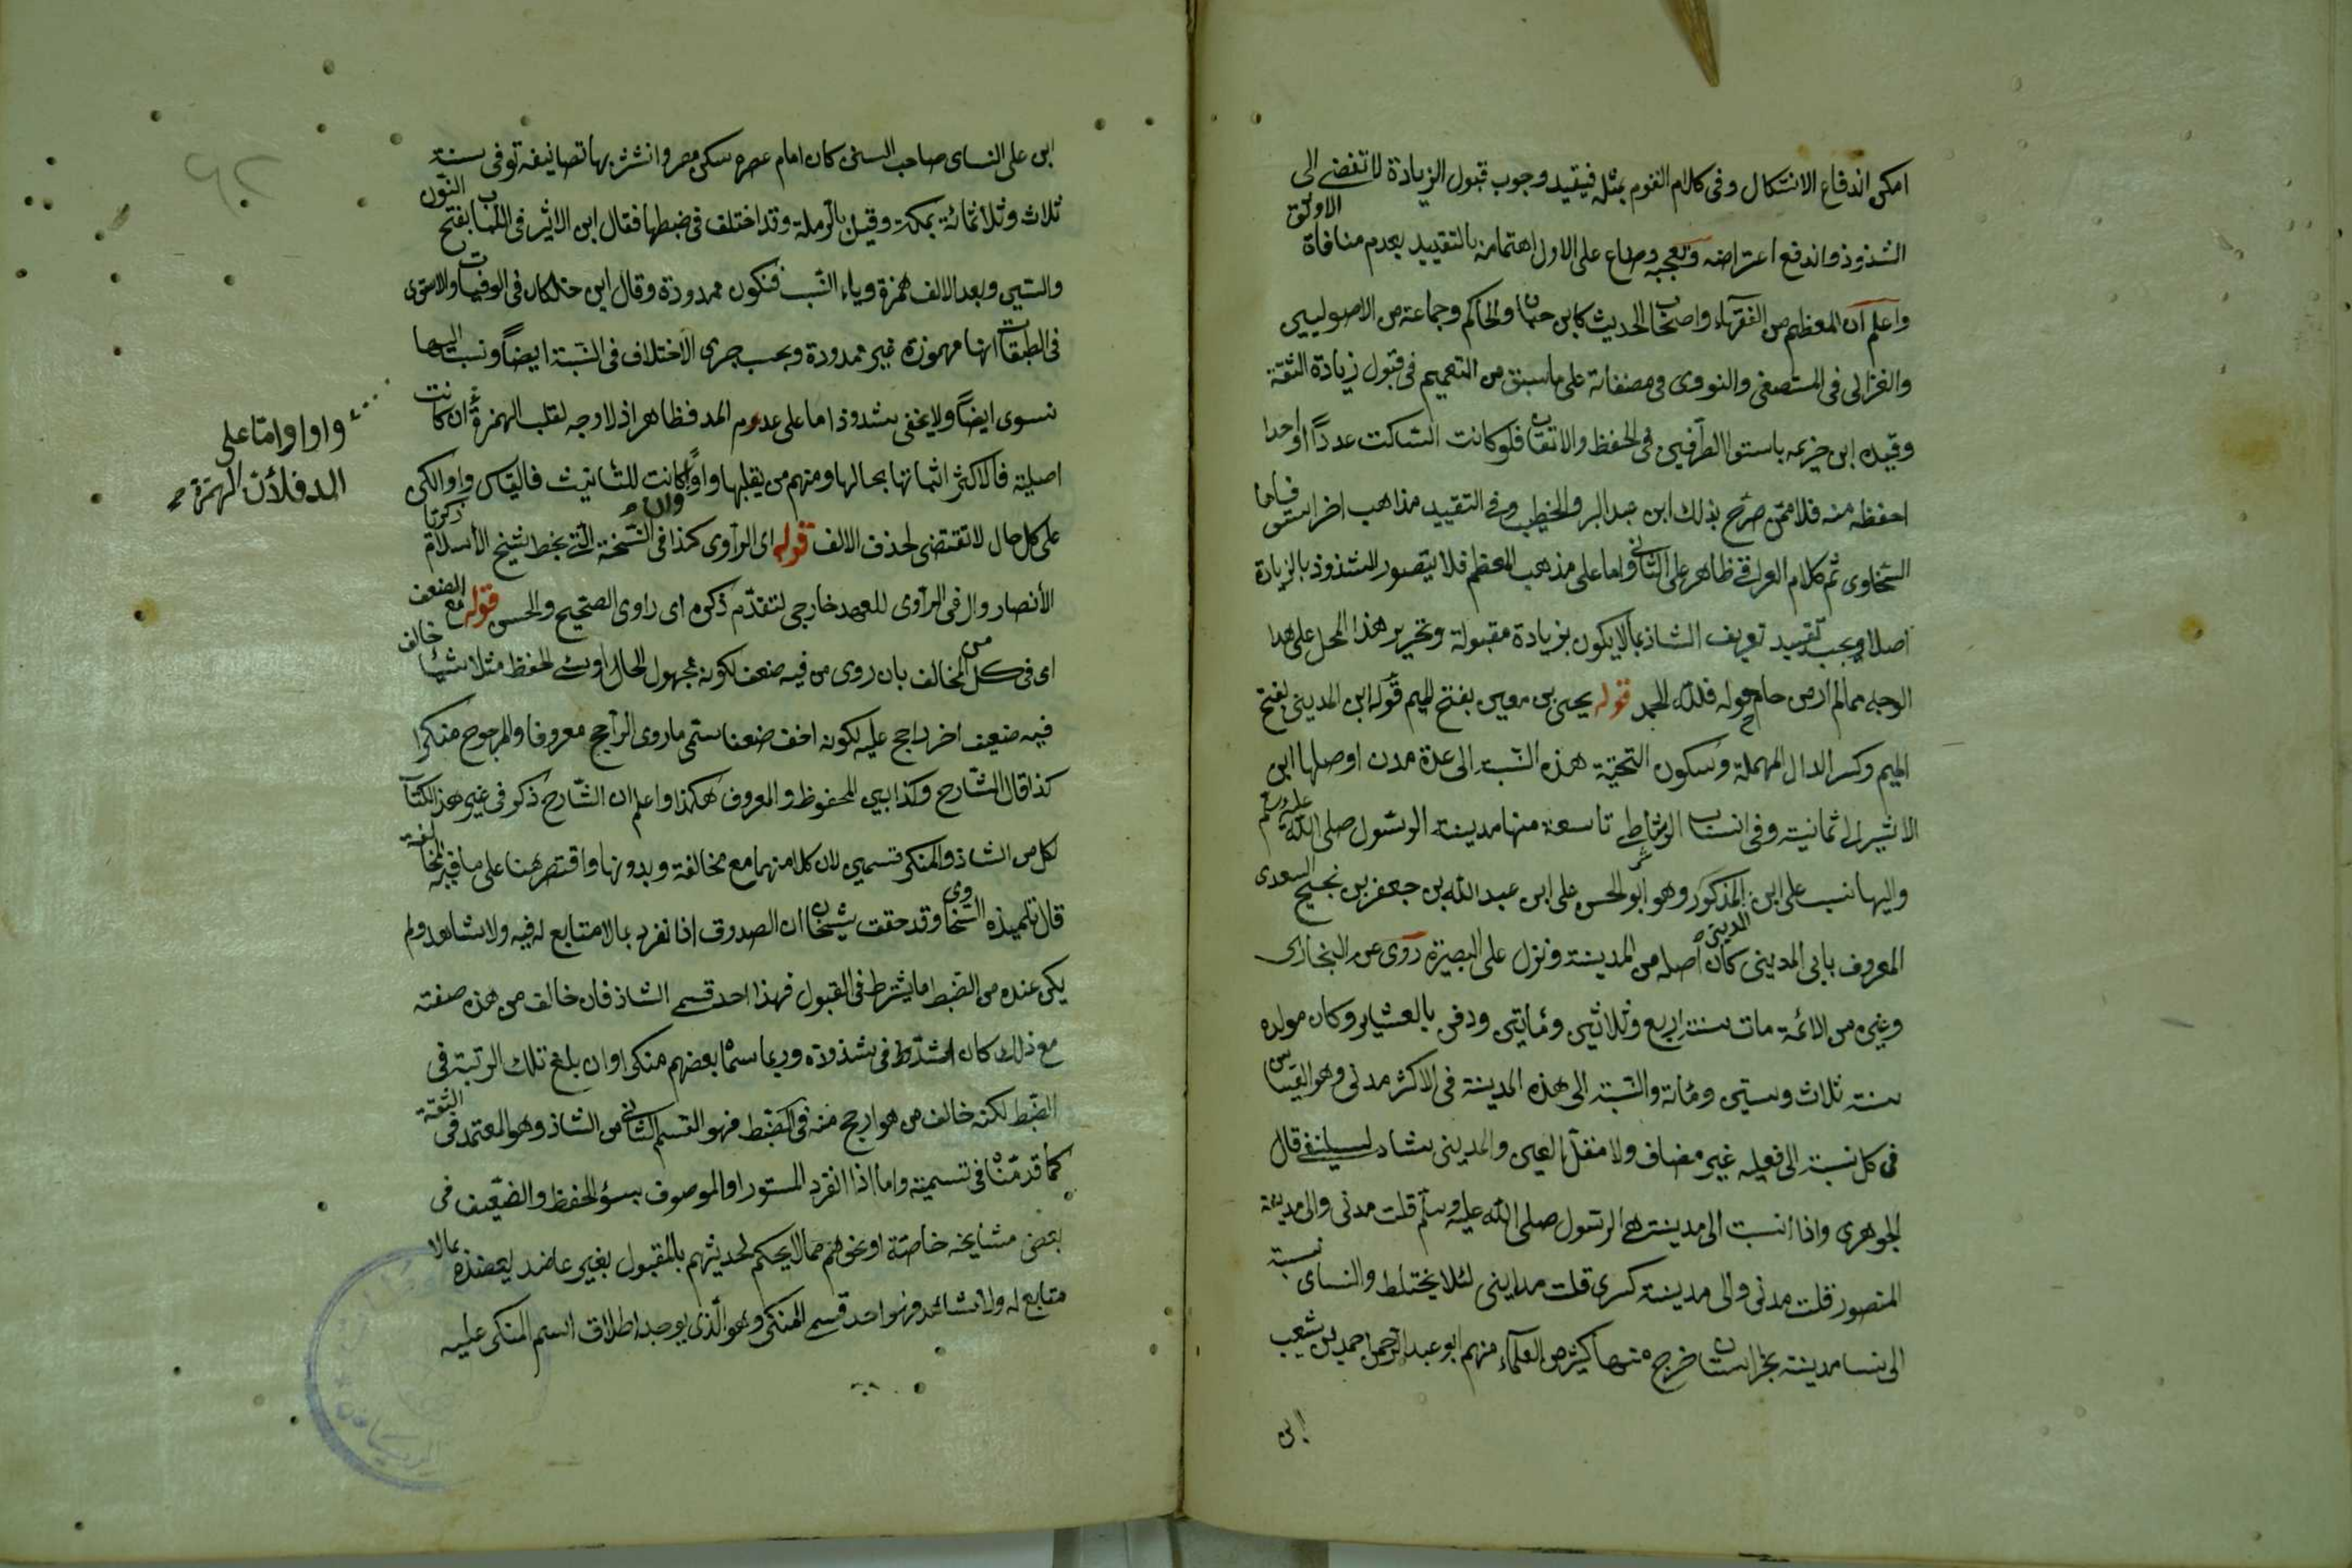 امكن اندفاع الاشكال وفى كلام القوم بمثله فيقيد وجوب قبول الزيادة لا تفضى الى
الشذوذ واندفع اعتراضه وتعجبه وضاع على الاول اهتمامنه بالتقييد بعدم منافاة الاوثق
واعلم ان المعظم من الفقهاء واصحاب الحديث كابن حبان والحاكم وجماعة من الاصوليين
والغزالى فى المستصفى والنووى فى مصنفاته على ما سبق من التعميم فى قبول زيادة الثقة
وقيده ابن خزيمه باستوا الطرفين فى الحفظ والاتقان فلو كانت الساكت عددًا او احدا
احفظ منه فلا ممن صرح بذلك ابن عبد البر والخطيب وفى التقييد مذاهب اخر استوفاها
السخاوى ثم كلام العراقى ظاهر على الثانى واما على مذهب المعظم فلا يتصور للشذوذ بالزيادة
اصلا ويجب تقييد تعريف الشاذ بما لا يكون بزيادة مقبولة وتحرير هذا المحل على هذا
الوجه مما لم أر من حام حوله فلله الحمد قوله يحيى بن معين بفتح الميم قوله ابن المدينى بفتح
الميم وكسر الدال المهملة وسكون التحتية هذه النسبة الى عدة مدن اوصلها ابن
الاثير الى ثمانية وفى انساب الرشاطى تاسعة منها مدينة الرسول صلى الله عليه وسلم
واليها نسب على ابن المدينى المذكور وهو ابو الحسن على ابن عبد الله بن جعفر بن نجيح السعدى
المعروف بابى المدينى كان اصله من المدينة ونزل على البصرة روى عن البخارى
وغيره من الائمة مات سنة اربع وثلاثين ومأتين ودفن بالعسكر وكان مولده
سنة ثلاث وستين ومأئة والنسبة الى هذه المدينة فى الاكثر مدنى وهو القياس
فى كل نسبة الى فعيله غير مضاف ولا معتل العين والمدينى شاذ قال
الجوهرى واذا نسبت الى مدينة الرسول صلى الله عليه وسلم قلت مدنى والى مدينة
المنصور قلت مدنى والى مدينة كسرى قلت مداينى لئلا يختلط والنساى نسبة
الى نسا مدينة بخراسان خرج منها كثير من العلماء منهم ابو عبد الرحمن احمد بن شعيب
ابن
ابن على النساى صاحب السنن كان امام عصره سكن مصر وانتشر بها تصانيفه توفى سنة
ثلاث وثلاثمائة بمكة وقيل بالرملة وقد اختلف فى ضبطها فقال ابن الاثير فى اللباب بفتح النون
والسين وبعد الالف همزة وياء النسب فتكون ممدودة وقال ابن خلكان فى الوفيات والاسنوى
فى الطبقات انها مهموزة غير ممدودة ويجب جرى الاختلاف فى النسبة ايضًا ونسب اليها
نسوى ايضًا ولا يخفى شذوذ اما على عدم المد فظاهر اذ لا وجه لقلب الهمزة ان كانت
واوا واما على
المد فلأن الهمزة
اصلية فالاكثر اثباتها بحالها ومنهم من يقلبها واوًا وان كانت للتأنيث فالقياس واو الكن
على كل حال لا تقتضى لحذف الالف قوله اى الراوى كذا فى النسخة التى بخط شيخ الأسلام زكريا
الأنصار وال فى الراوى للعهد خارجى لتقدم ذكره اى راوى الصحيح والحسن قوله مع الضعف
اى فى كل من المخالف بان روى من فيه ضعف لكونه مجهول الحال او سئ الحفظ مثلا شيئا خالف
فيه ضعيف اخر راجح عليه لكونه اخف ضعفا سمى ما روى الراجح معروفا والمرجوح منكرا
كذا قال الشارح وكذا بين المحفوظ والمعروف هكذا واعلم ان الشارح ذكر فى غير هذا الكتاب
لكل من الشاذ والمنكر قسمين لان كلا منهما مع مخالفة وبدونها واقتصر هنا على ما فيه المخالفة
قال تلميذه السخاوى وقد حقق شيخنا ان الصدوق اذا تفرد بما لا متابع له فيه ولا شاهد ولم
يكن عنده من الضبط ما يشترط فى القبول فهذا احد قسمى الشاذ فان خالف من هذه صفته
مع ذلك كان اشد فى شذوذه وربما سماه بعضهم منكرا وان بلغ تلك الرتبة فى
الضبط لكنه خالف من هو ارجح منه فى الضبط فهو القسم الثانى من الشاذ وهو المعتمد فى
كما قدمنا فى تسميته واما اذا انفرد المستور او الموصوف بسؤ الحفظ والضعيف فى
بعض مشايخه خاصة او نحوهم مما لا يحكم لحديثهم بالمقبول بغير عاضد يعضده بما لا
متابع له ولا شاهد فهو احد قسمى المنكر وهو الذى يوجد اطلاق اسم المنكر عليه